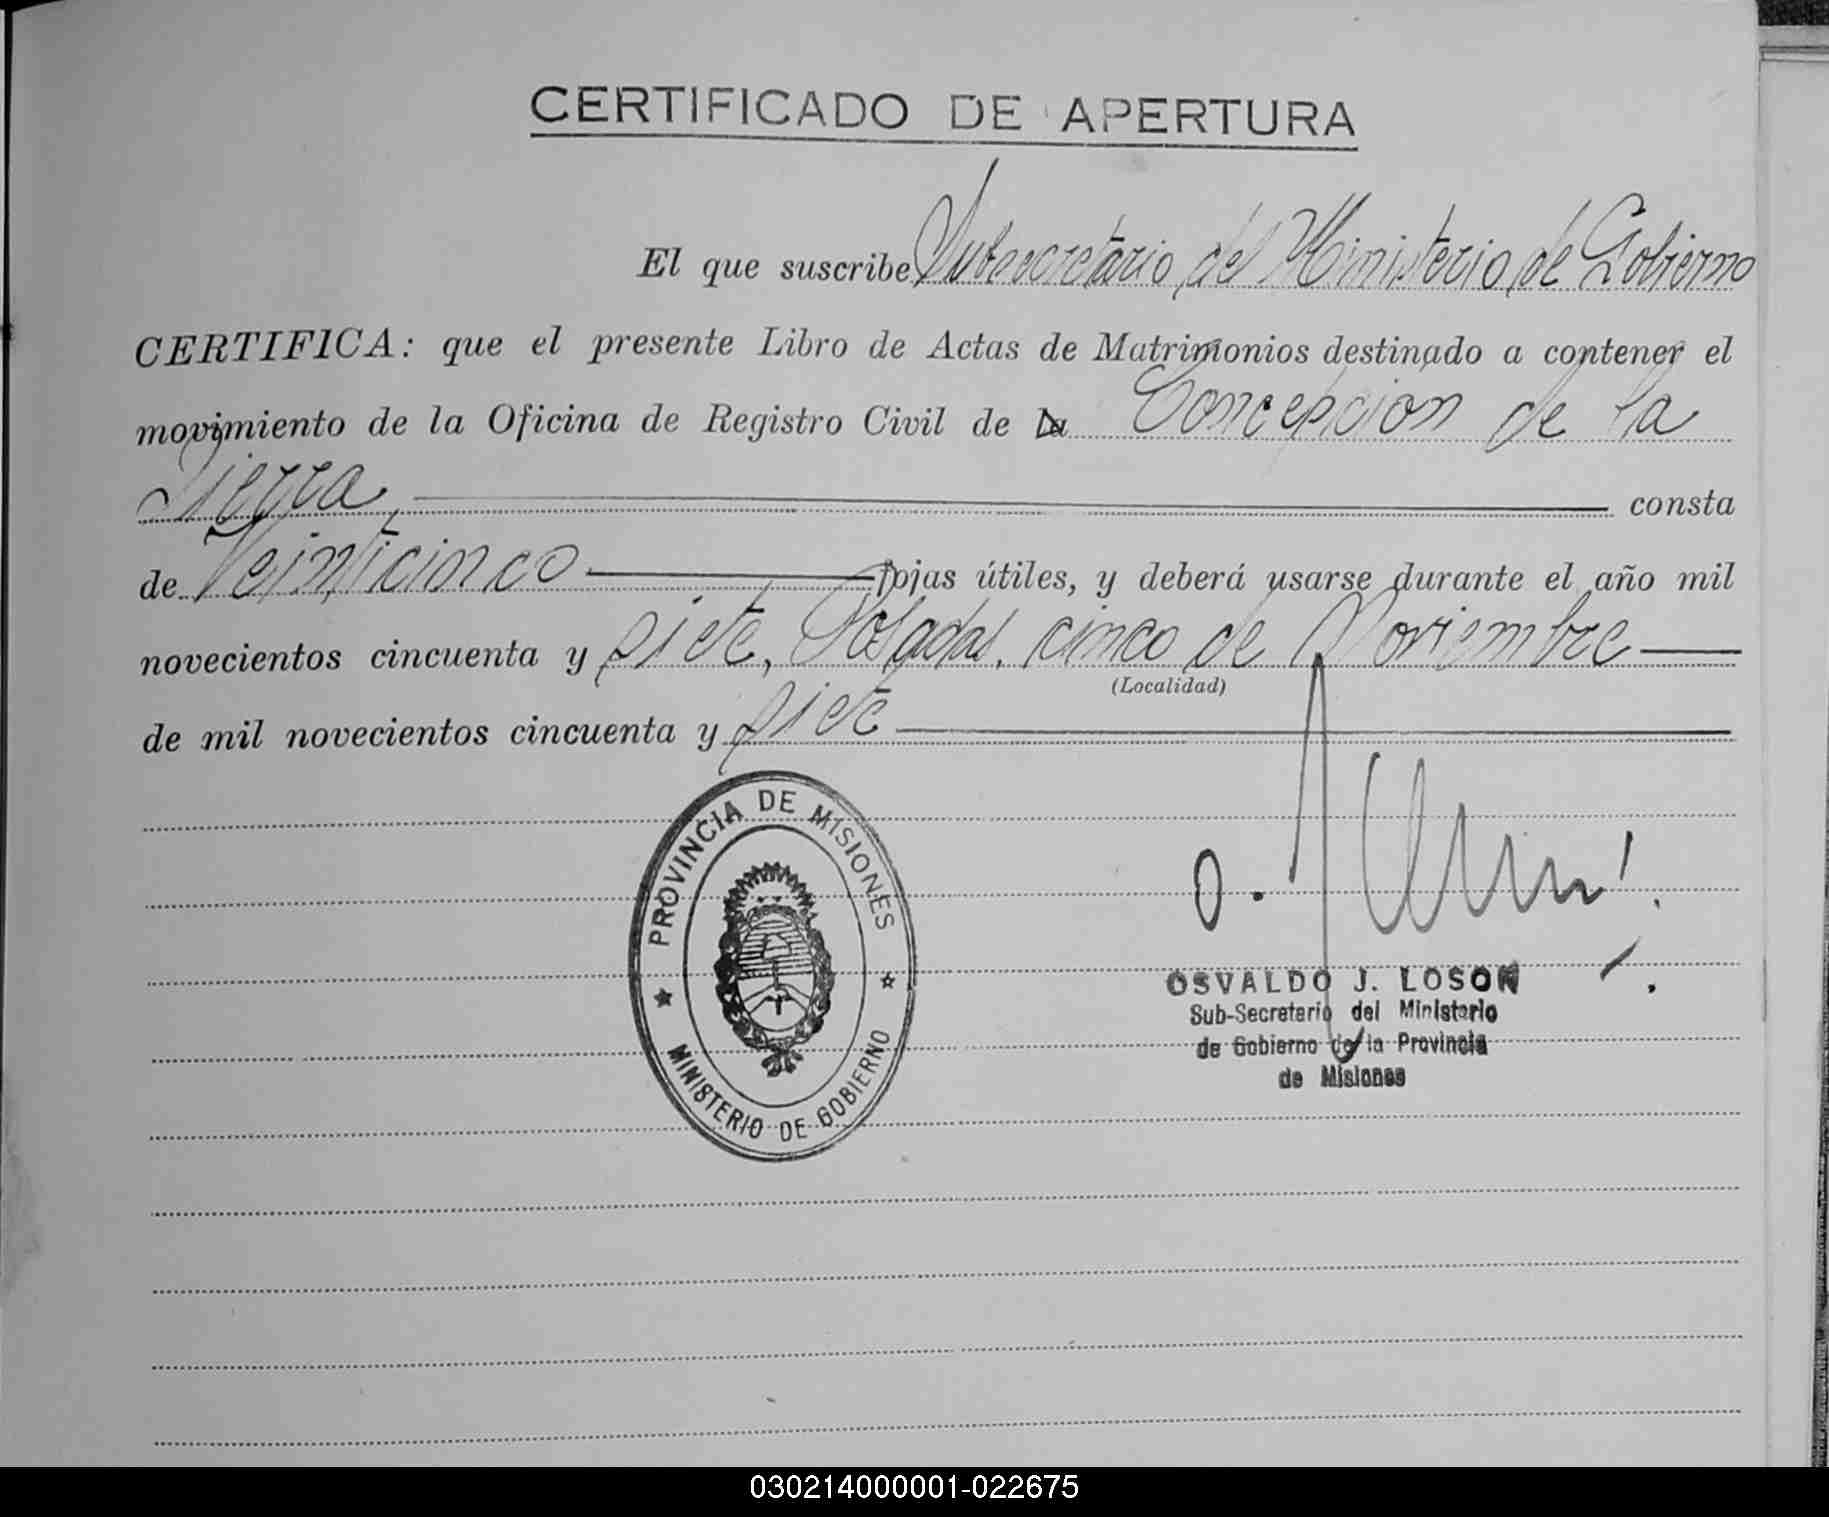 CERTIFICADO DE APERTURA
El que suscribe Subsecretario del Ministerio de Gobierno
CERTIFICA: que el presente Libro de Actas de Matrimonios destinado a contener el
movimiento de la Oficina de Registro Civil de la Concepción de la
Sierra consta
de Veinticinco fojas útiles, y deberá usarse durante el año mil
novecientos cincuenta y siete, Posadas, cinco de Noviembre
(Localidad)
de mil novecientos cincuenta y siete
PROVINCIA DE MISIONES
MINISTERIO DE GOBIERNO
OSVALDO J. LOSON
Sub-Secretario del Ministerio
de Gobierno de la Provincia
de Misiones
030214000001-022675